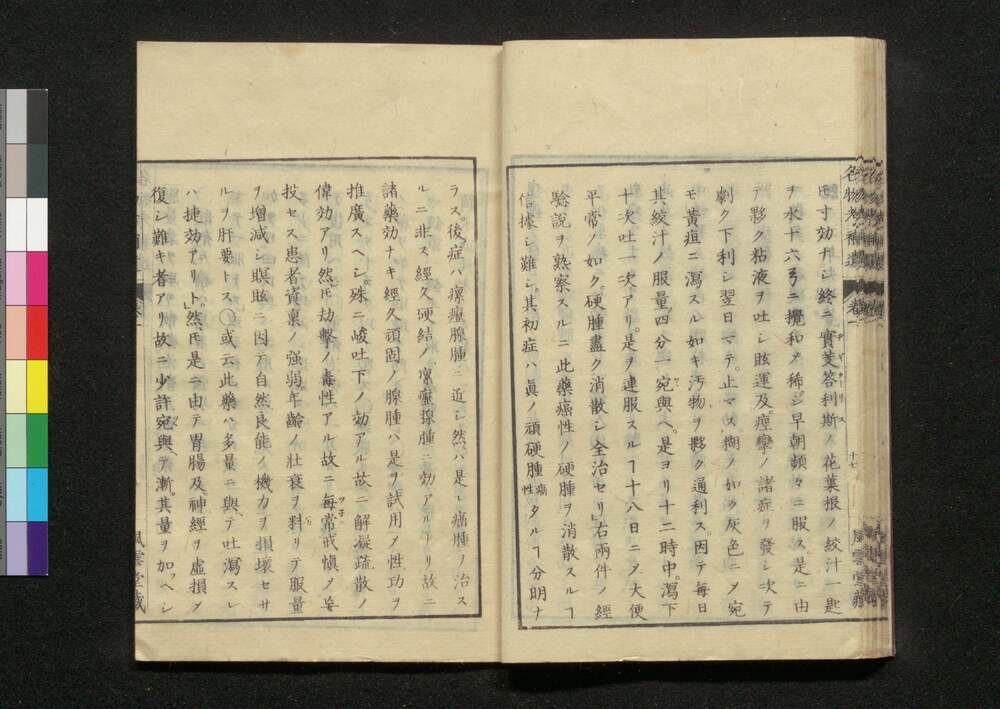 名物考補遺 巻一 十七 風雲堂蔵
㕥寸効ナシ終ニ實芰答利斯ノ花葉根ノ絞汁一匙
ヲ水十六弓ニ攪和〆稀シ早朝頻々ニ服ス是ニ由
テ夥ク粘液ヲ吐シ眩運及痙攣ノ諸症ヲ發シ次テ
劇ク下利シ翌日マテ止マス糊ノ如ク灰色ニ〆宛
モ黄疸ニ瀉スル如キ汚物ヲ夥ク通利ス因テ毎日
其絞汁ノ服量四分一宛與ヘ是ヨリ十二時中瀉下
十次吐一次アリ是ヲ連服スルヿ十八日ニ〆大便
平常ノ如ク硬腫盡ク消散シ全治セリ右兩件ノ經
驗説ヲ熟察スルニ此藥癌性ノ硬腫ヲ消散スルヿ
信據シ難シ其初症ハ眞ノ頑硬腫癌性タルヿ分明ナ
ラス後症ハ瘰癧腺腫ニ近シ然ハ是レ癌腫ノ治ス
ルニ非ス經久硬結ノ瘰癧腺腫ニ効アルナリ故ニ
諸藥効ナキ經久頑固ノ腺腫ハ是ヲ試用〆性功ヲ
推廣スヘシ殊ニ峻吐下ノ効アル故ニ解凝疏散ノ
偉効アリ然㪽劫擊ノ毒性アル故ニ毎常戒愼〆妄
投セス患者資稟ノ強弱年齡ノ壯衰ヲ料リテ服量
ヲ増減シ瞑眩ニ因テ自然良能ノ機力ヲ損壞セサ
ルヲ肝要トス○或云此藥ハ多量ニ與テ吐瀉スレ
ハ捷効アリト然㪽是ニ由テ胃腸及神經ヲ虚損〆
復シ難キ者アリ故ニ少許宛與テ漸其量ヲ加ヘシ
風雲堂蔵